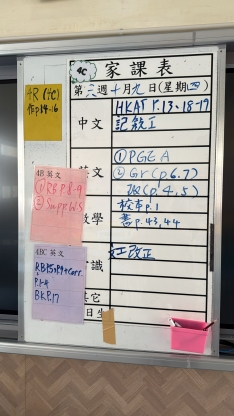 4C 家課表
第六週十月九日(星期四)
4R (4C)
作p.14-16
中文
HKAT P.13、18-19
記敘I
英文
① PGE A
② Gr (p6.7)
(p4,5)
4B 英文
① RB P.8-9
② Supp. WS
數學
校本 p.1
書 p.43,44
4BC 英文
常識
改正
RB P.5&P.9 + Corr.
P.1-4
BK P.17
其它
生日